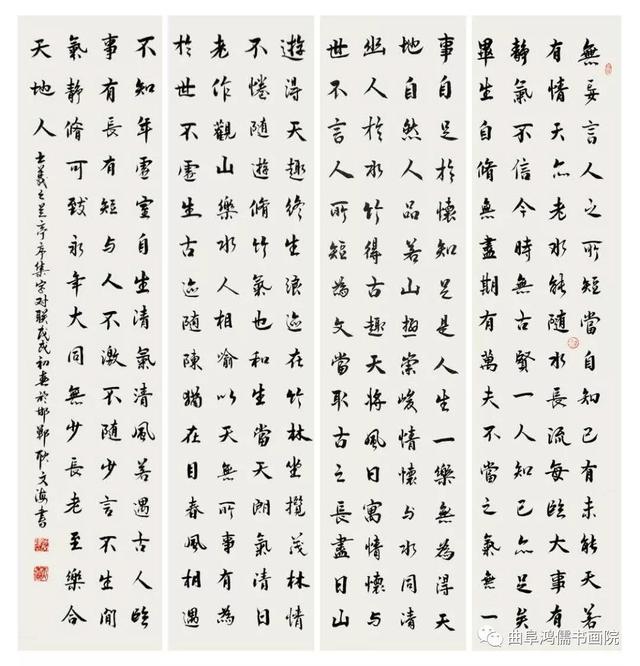 無妄言人之所短當自知己有未能天若
有情天亦老水能隨水長流每臨大事有
靜氣不信今時無古賢一人知己亦足矣
畢生自脩無盡期有萬夫不當之氣無一
事自足於懷知足是人生一樂無為得天
地自然人品若山極崇峻情懷与水同清
幽人於水竹得古趣天將風日寓情懷与
世不言人所短為文當取古之長盡日山
遊得天趣終生浪迹在竹林坐攬茂林情
不惓隨遊脩竹氣也和生當天朗氣清日
老作觀山樂水人相喻以天無所事有為
於世不虛生古迹隨陳猶在目春風相遇
不知年虛室自生清氣清風若遇古人臨
事有長有短与人不激不隨少言不生閒
氣靜脩可致永年大同無少長老至樂合
天地人
羲之兰亭序集字对联戊戌初於邯鄲耿文海書
曲阜鸿儒书画院